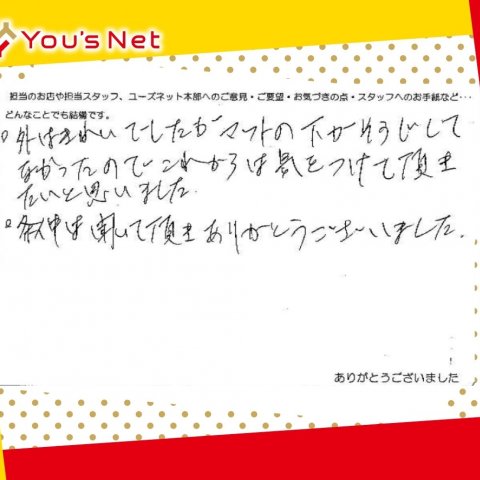 You's Net
担当のお店や担当スタッフ、ユーズネット本部へのご意見・ご要望・お気づきの点・スタッフへのお手紙など・・・
どんなことでも結構です。
外はきれいでしたがマットの下がそうじして
なかったのでこれからは気をつけて頂き
たいと思いました。
は 頂き ありがとうございました。
ありがとうございました